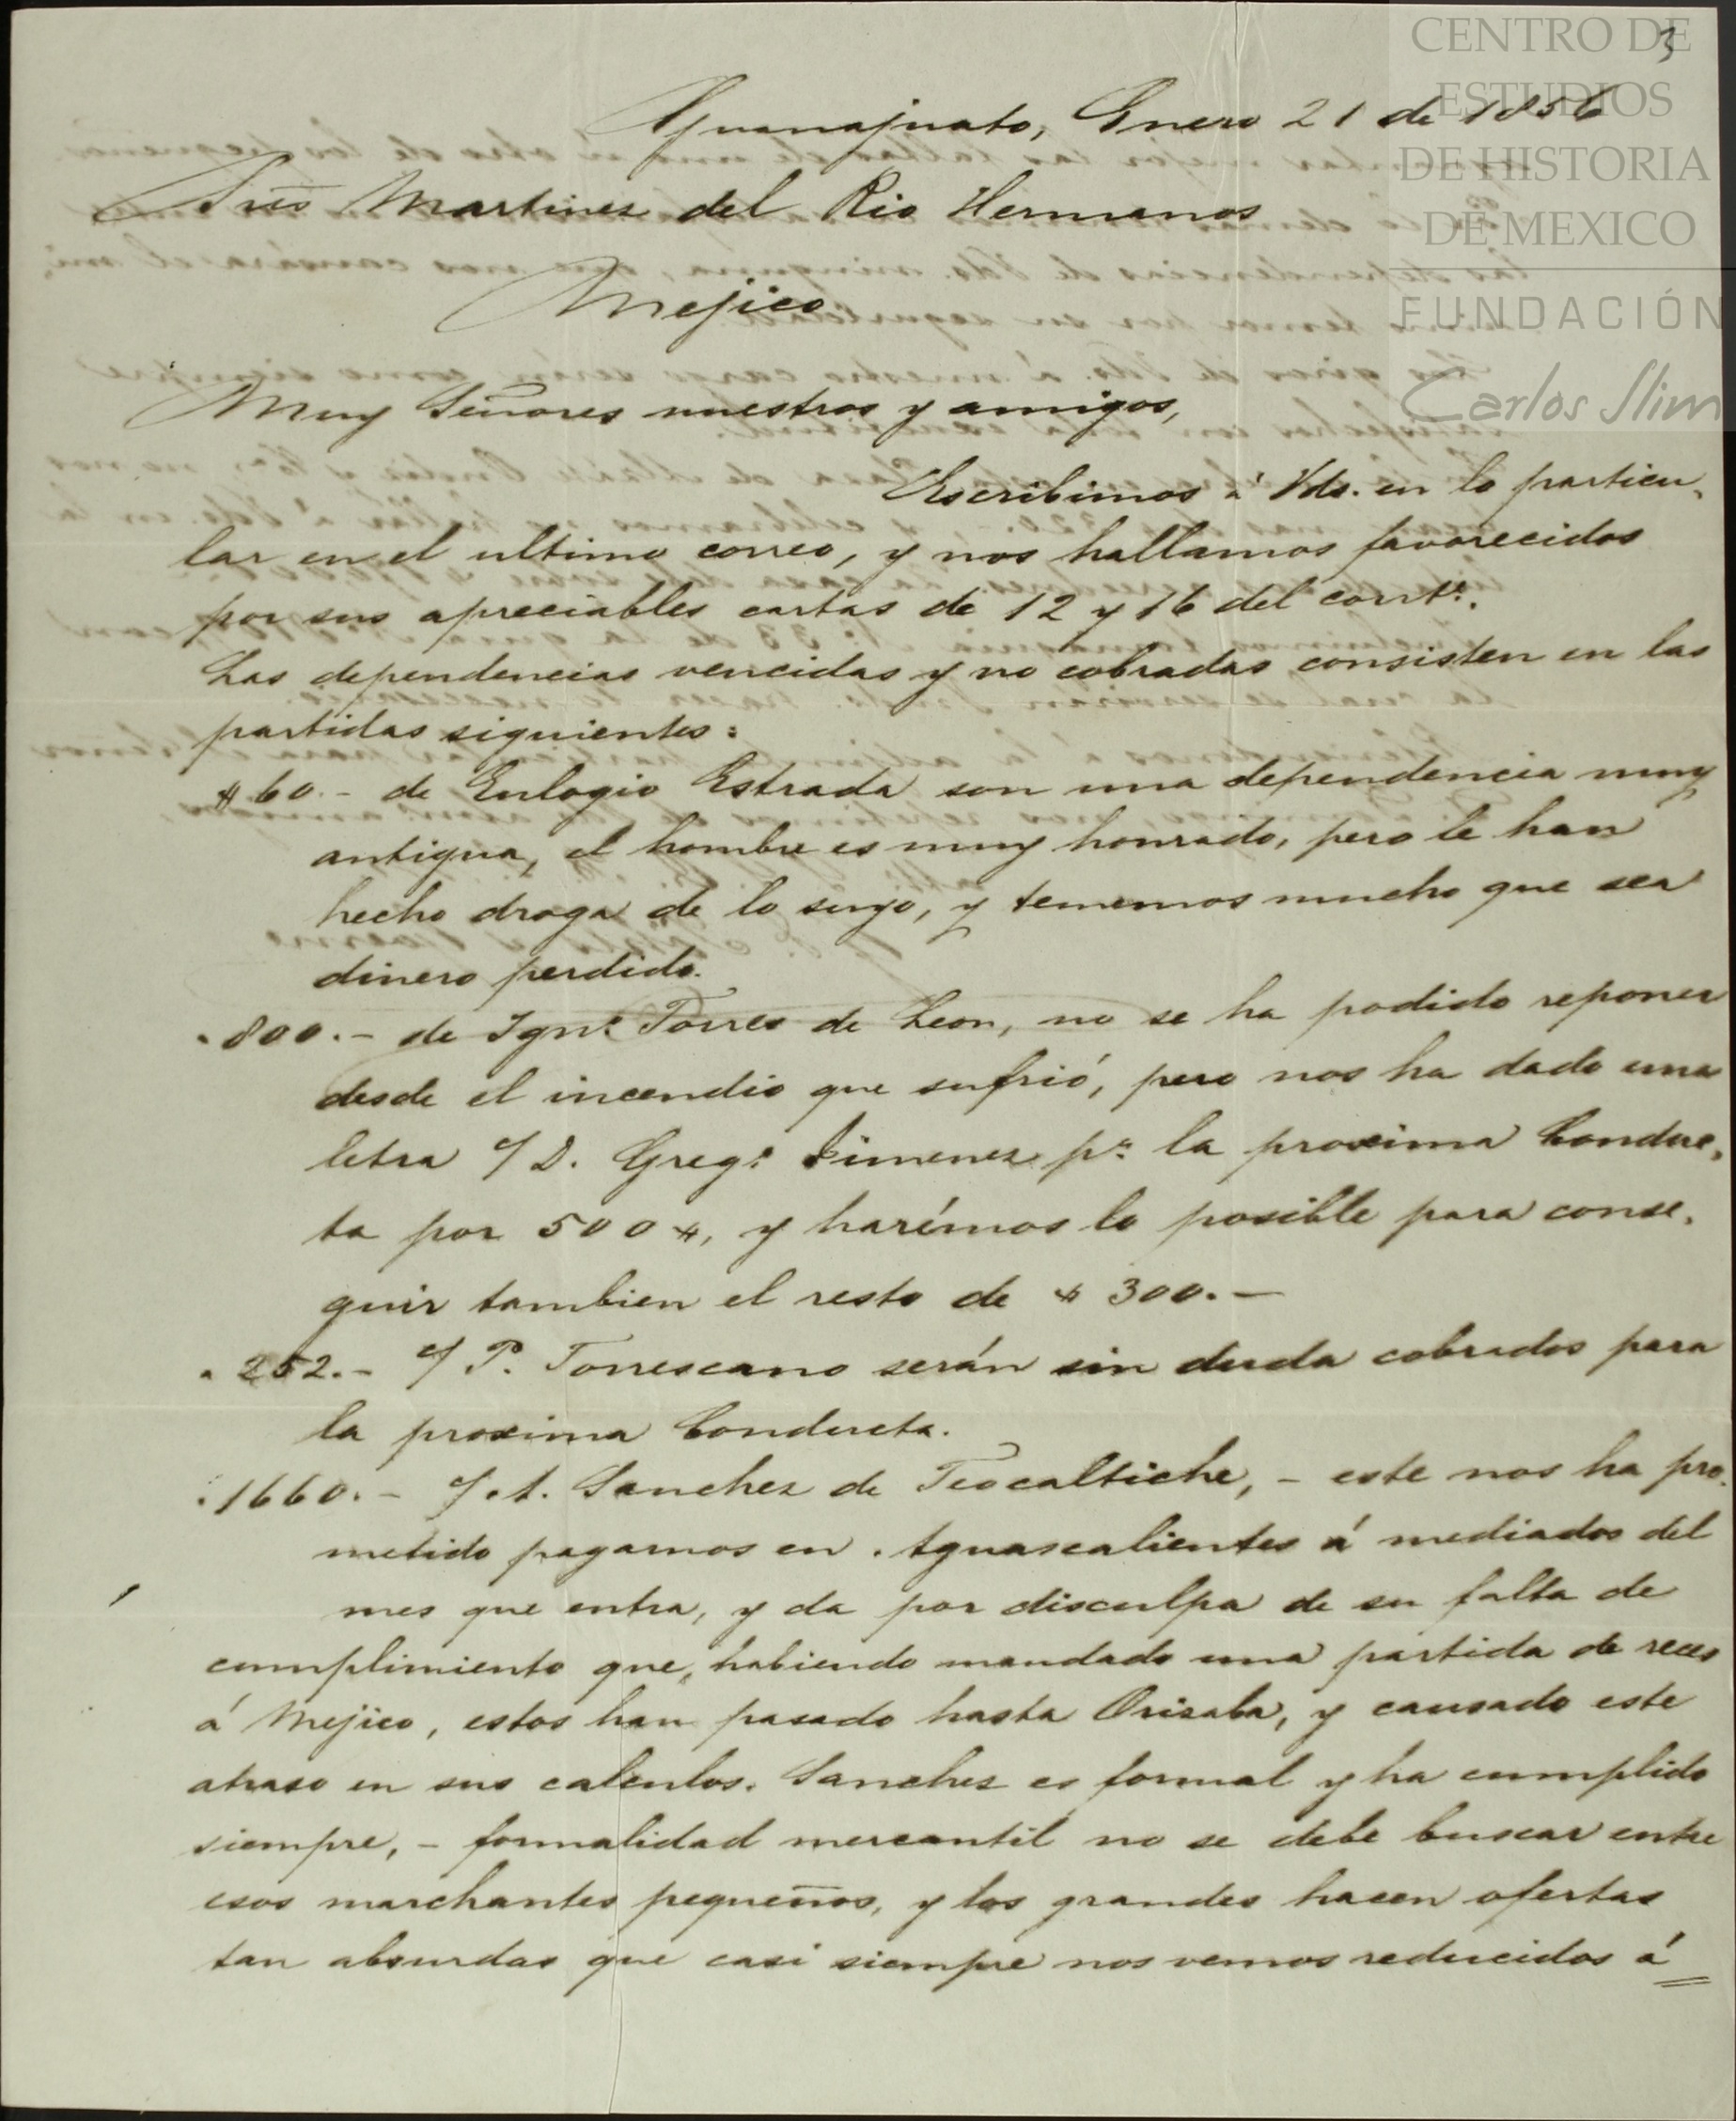 3
CENTRO DE
ESTUDIOS
DE HISTORIA
DE MEXICO
FUNDACIÓN
Carlos Slim
Guanajuato, Enero 21 de 1856
Sres Martinez del Rio Hermanos
Mejico
Muy Señores nuestros y amigos,
Escribimos á Vds. en lo particu-
lar en el ultimo correo, y nos hallamos favorecidos
por sus apreciables cartas de 12 y 16 del corrte.
Las dependencias vencidas y no cobradas consisten en las
partidas siguientes:
$ 60.- de Eulogio Estrada son una dependencia muy
antigua, el hombre es muy honrado, pero le han
hecho droga de lo suyo, y tememos mucho que sea
dinero perdido.
" 800.- de Igno. Torres de Leon, no se ha podido reponer
desde el incendio que sufrió, pero nos ha dado una
letra c/ D. Grego. Jimenez pa. la proxima Conduc-
ta por 500 $, y harémos lo posible para conse-
guir tambien el resto de $ 300.-
" 252.- c/ P. Torrescano serán sin duda cobrados para
la proxima Conducta.
" 1660.- c/ A. Sanchez de Teocaltiche, - este nos ha pro-
metido pagarnos en Aguascalientes á mediados del
mes que entra, y da por disculpa de su falta de
cumplimiento que, habiendo mandado una partida de reces
á Mejico, estos han pasado hasta Orizaba, y causado este
atraso en sus calculos. Sanchez es formal y ha cumplido
siempre, - formalidad mercantil no se debe buscar entre
esos marchantes pequeños, y los grandes hacen ofertas
tan absurdas que casi siempre nos vemos reducidos á